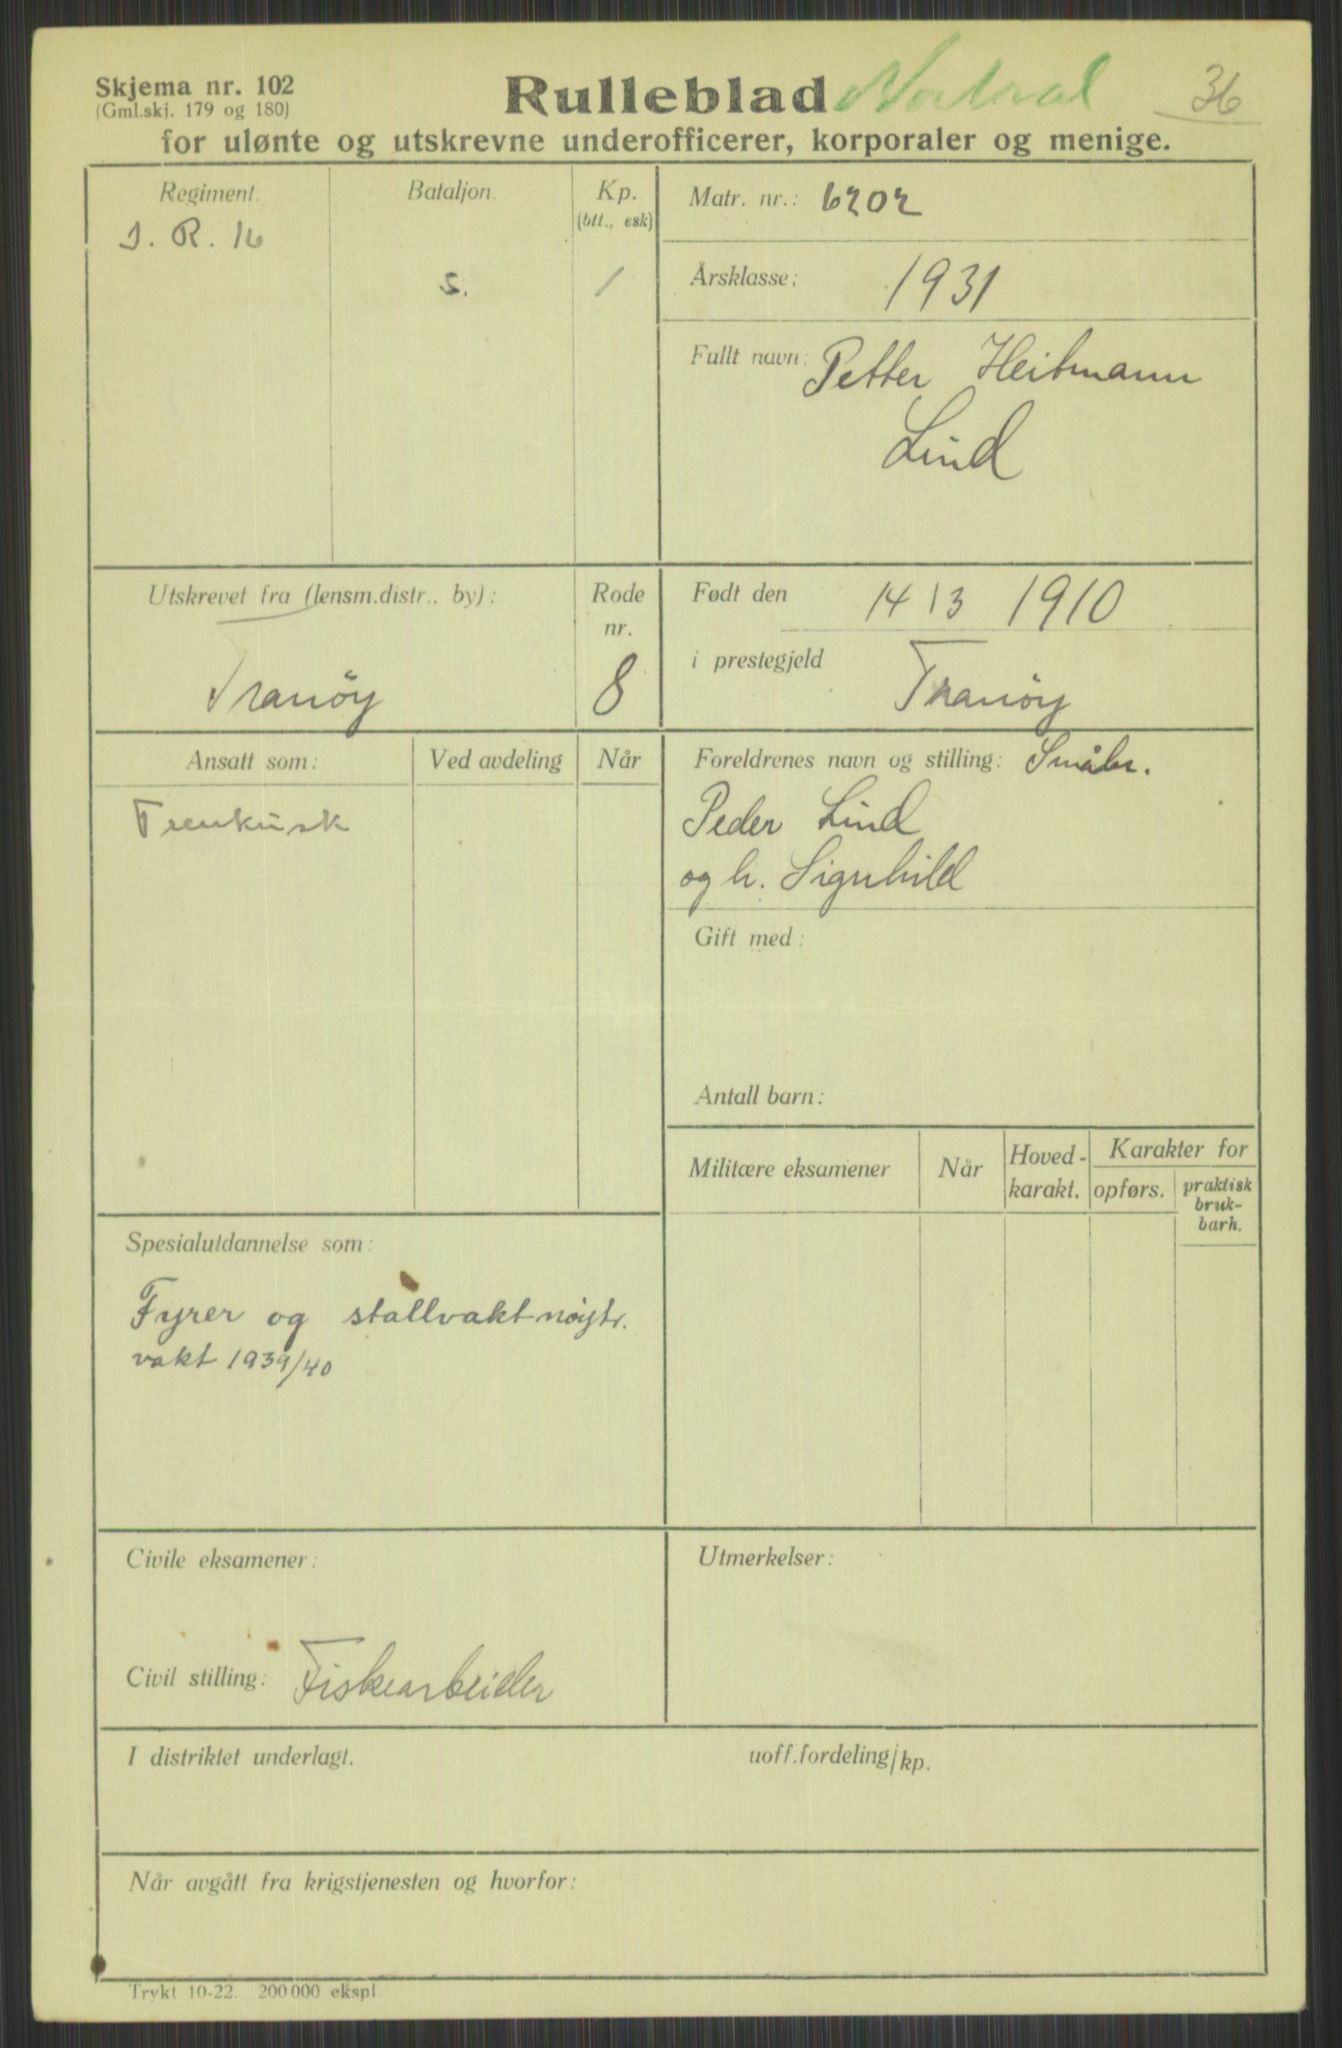 Skjema nr. 102
(Gml.skj. 179 og 180)
Rulleblad
36
for ulønte og utskrevne underofficerer, korporaler og menige.
Regiment.
J. R. 16
Bataljon.
S.
Kp.
(btt., esk)
1
Matr. nr.: 6202
Årsklasse: 1931
Fullt navn: Petter Heitmann
Lind
Utskrevet fra (lensm.distr., by):
Tranöy
Rode
nr.
8
Født den 14/3 1910
i prestegjeld Tranöy
Ansatt som:
Trenkusk
Ved avdeling
Når
Foreldrenes navn og stilling: Småbr.
Peder Lind
og h. Signhild
Gift med:
Antall barn:
Militære eksamener
Når
Hoved-
karakt.
Karakter for
opførs.
praktisk
bruk-
barh.
Spesialutdannelse som:
Fyrer og stallvakt nøytr.
vakt 1939/40
Civile eksamener:
Civil stilling: Fiskearbeider
Utmerkelser:
I distriktet underlagt.
uoff.fordeling/kp.
Når avgått fra krigstjenesten og hvorfor:
Trykt 10-22. 200 000 ekspl